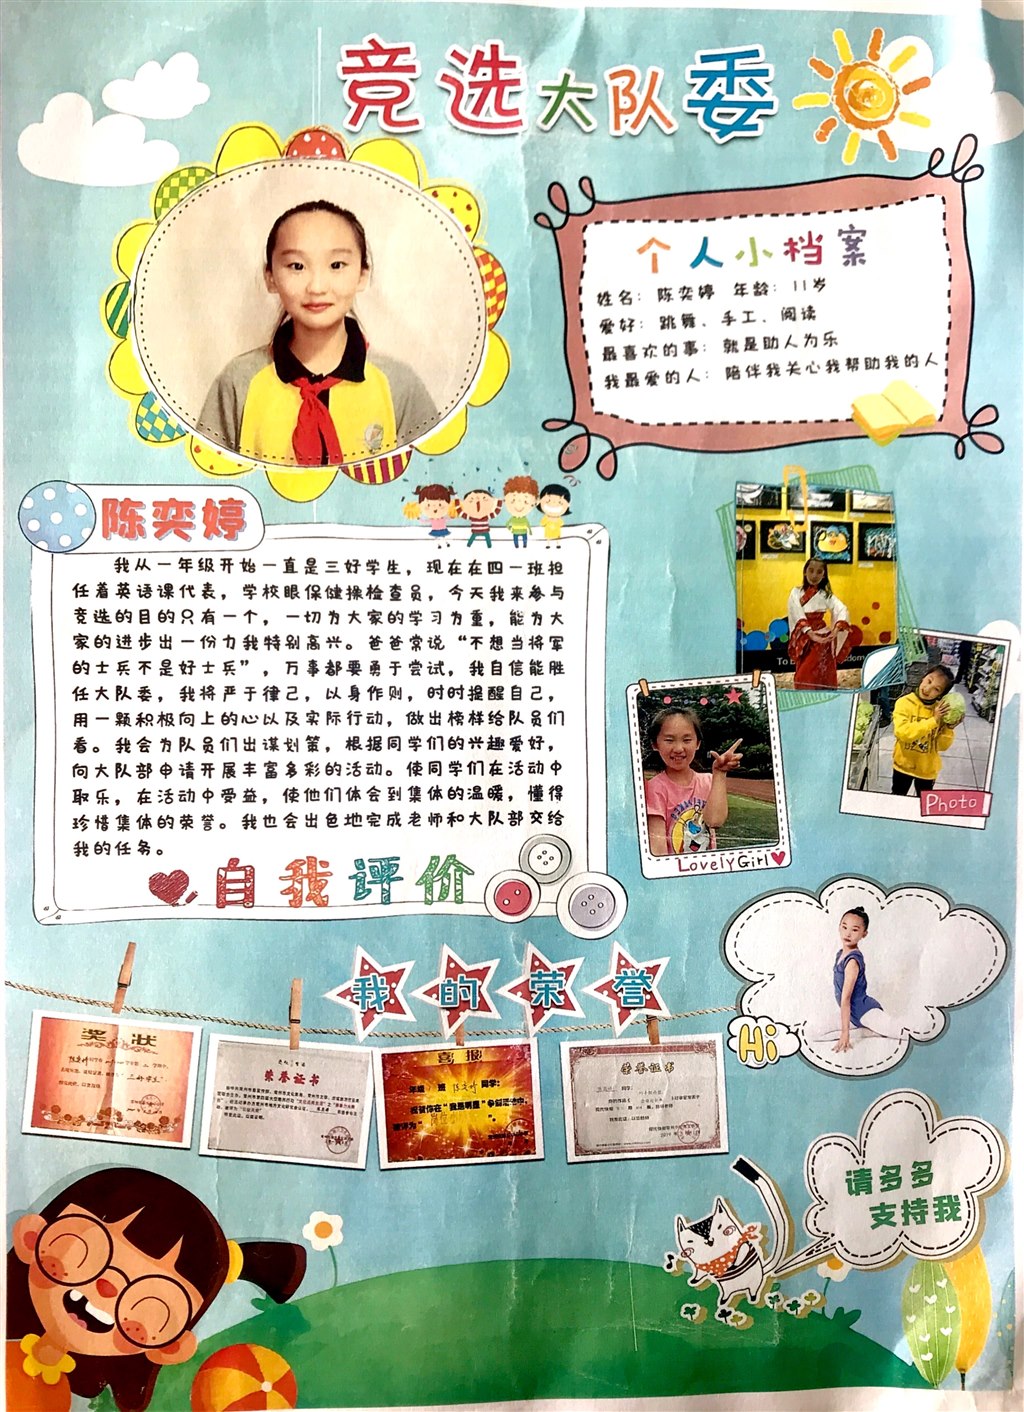 竞选大队委
个人小档案
姓名：陈奕婷 年龄：11岁
爱好：跳舞、手工、阅读
最喜欢的事：就是助人为乐
我最爱的人：陪伴我关心我帮助我的人
陈奕婷
我从一年级开始一直是三好学生，现在在四一班担
任着英语课代表，学校眼保健操检查员，今天我来参与
竞选的目的只有一个，一切为大家的学习为重，能为大
家的进步出一份力我特别高兴。爸爸常说“不想当将军
的士兵不是好士兵”，万事都要勇于尝试，我自信能胜
任大队委，我将严于律己，以身作则，时时提醒自己，
用一颗积极向上的心以及实际行动，做出榜样给队员们
看。我会为队员们出谋划策，根据同学们的兴趣爱好，
向大队部申请开展丰富多彩的活动。使同学们在活动中
取乐，在活动中受益，使他们体会到集体的温暖，懂得
珍惜集体的荣誉。我也会出色地完成老师和大队部交给
我的任务。
自我评价
Photo
LovelyGirl
我的荣誉
Hi
奖状
荣誉证书
喜报
年级 班 陈奕婷 同学：
祝贺你在“我是明星”争创活动中，
荣誉证书
请多多
支持我